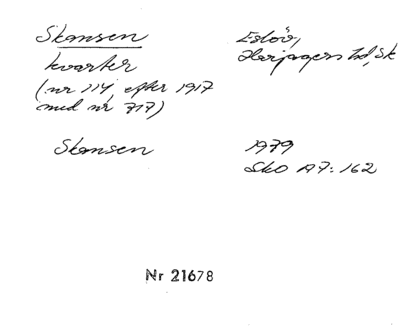 Skansen Eslöv,
kvarter Harjagers hd, Sk
(nr 114, efter 1917
med nr 717)
Skansen 1979
Sko A7: 162
Nr 21678